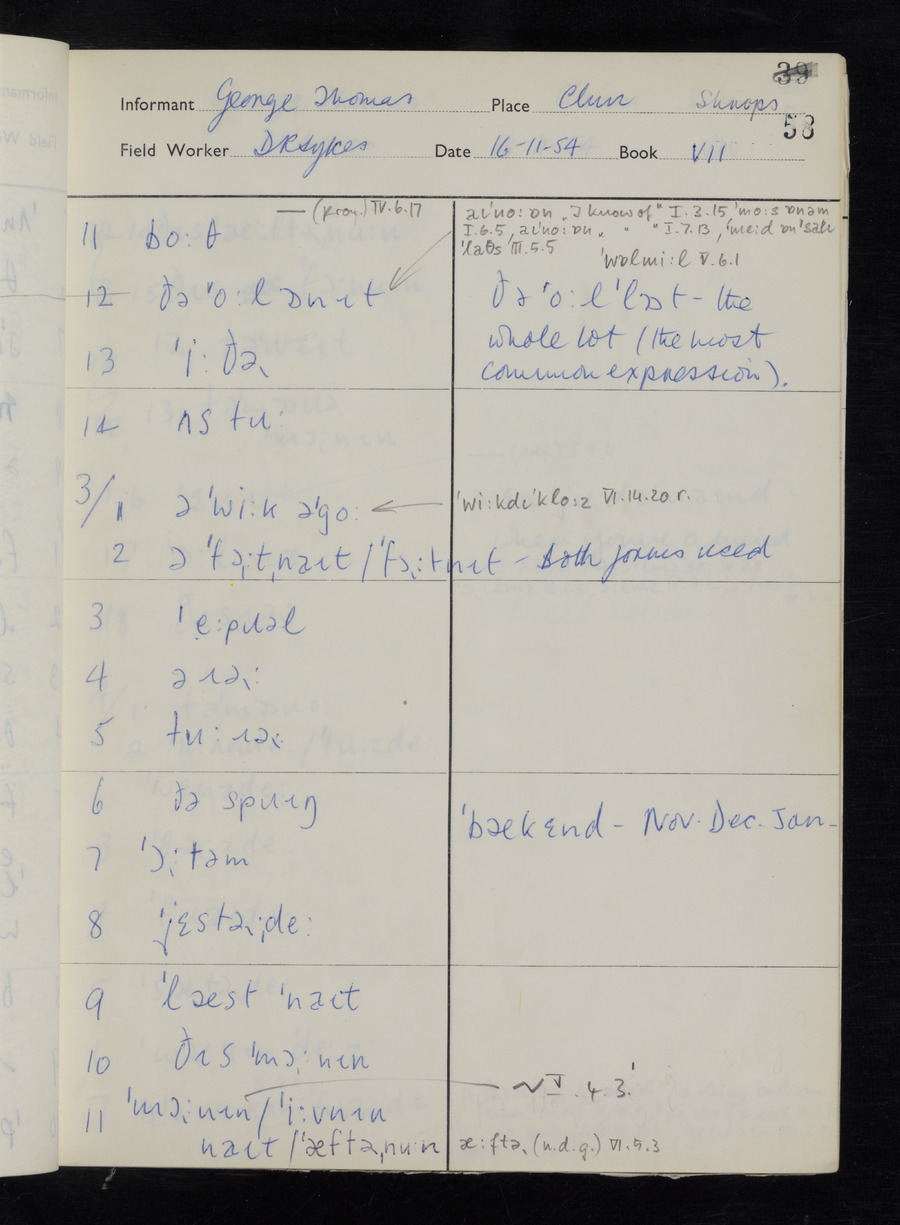 39
Informant George Thomas Place Clun Shrops
58
Field Worker D R Sykes Date 16-11-54 Book VII
(pron.) IV.6.17
11 bo:t
aɪ'no: ɒn „I know of" I.3.15, 'mo:s ɒnəm
I.6.5, aɪ'no: ɒn „ " " I.7.13, 'meɪd ɒn
III.5.5
'wolmi:l V.6.1
12 ðə 'o:l ɒn ɪt
ðə 'o:l 'lɒt – the
whole lot (the most
common expression).
13 'i:ðəɹ
14 ʌs tu:
3/1 ə 'wi:k ə'go:
'wi:kdɪ'klo:z VI.14.20 r.
2 ə 'fɔ:tˌnaɪt / 'fɔ:tnɪt – Both forms used
3 'e:pɹəl
4 əɹəɹ:
5 tu: ɹəɹ:
6 ðə spɹɪŋ
'bækɛnd – Nov. Dec. Jan –
7 'ɔ:təm
8 'jɛstəɹˌde:
9 'læst 'naɪt
10 ðɪs 'mɔ:nɪn
11 'mɔ:nɪn / 'i:vnɪn
~ V.4.3.
naɪt / 'æftəˌnu:n
æ:ftəɹ (n.d.g.) VI.5.3